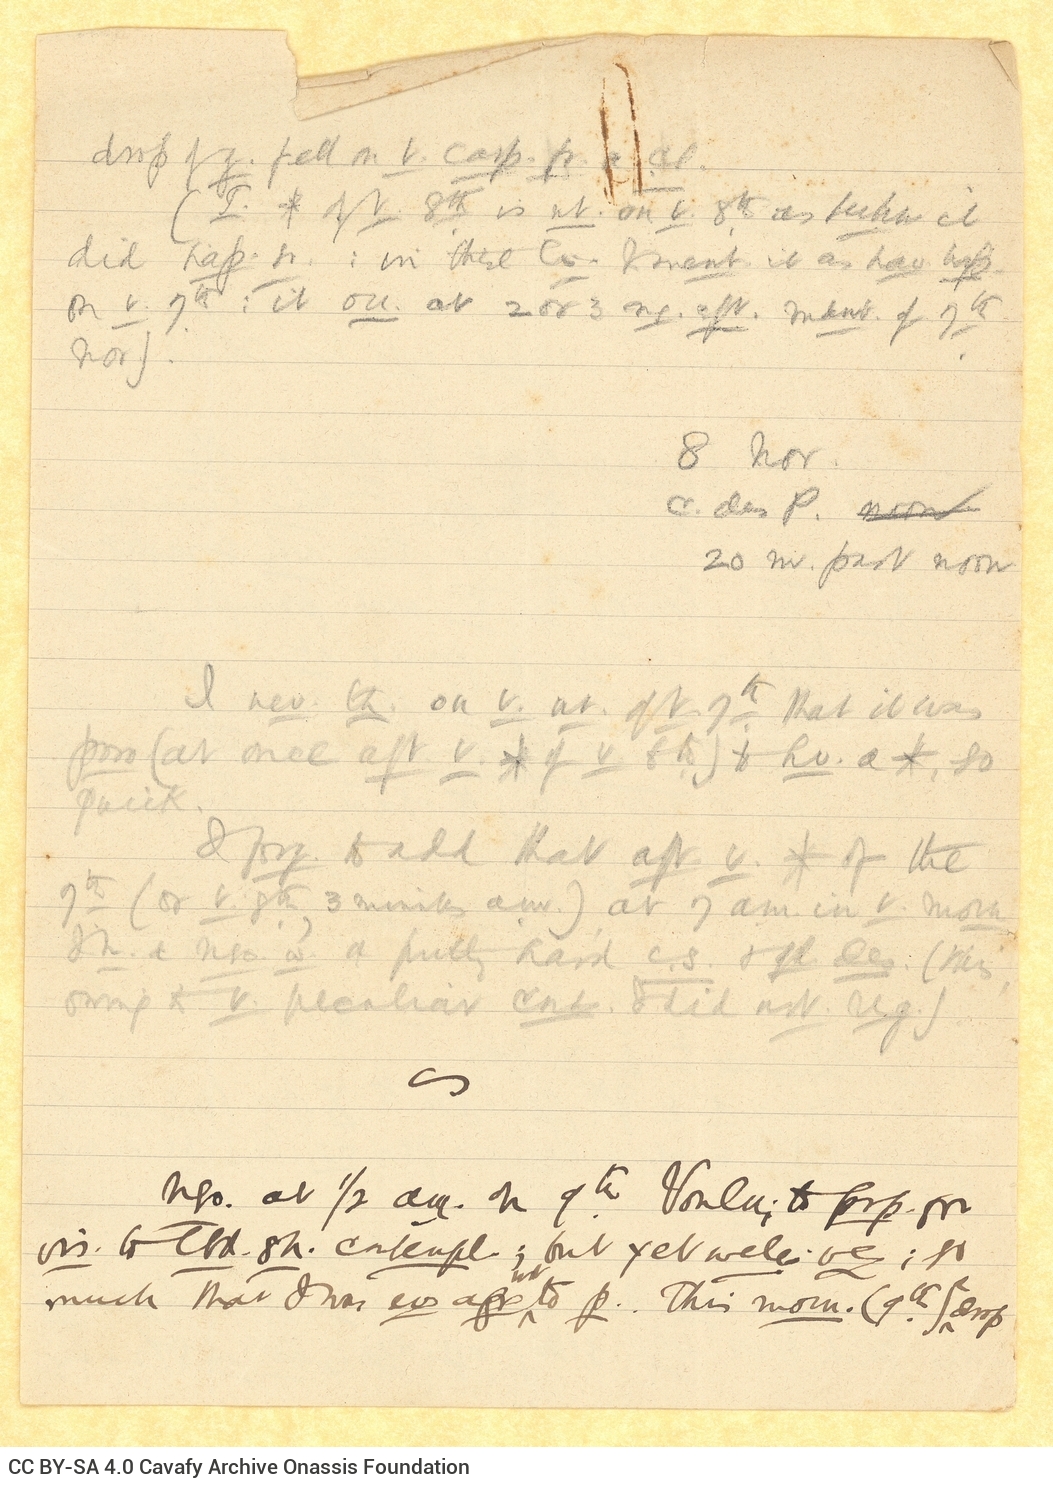 drop of g. fell on v. carp. fr. a cl.
(I. * of v. 8th is nt. on v. 8th as it
did hap. n. : in these I ment. it as hav. hap.
on v. 7th : it occ. at 2 or 3 mg. aft. ment. of 7th
Nov).
8 Nov.
C. des P. noon
20 m. past noon
I nev. th. on v. nt. of v. 7th that it was
poss (at once aft v. * of v 8th) to hv. a *, so
quick.
I forg. to add that aft v. * of the
7th (or v. 8th, 3 minutes am.) at 7 am. in v. morn
I h. a ngo. w. a pretty hard c.s. & gt. Des. (this,
owing to v. peculiar cnt. I did not reg.)
Ngo. at 1/2 am. on 9th Voulu; to prp. for
vis. to sh. contempl.; but yet ; so
much that I was not to p.. This morn. (9th) a drop
CC BY-SA 4.0 Cavafy Archive Onassis Foundation